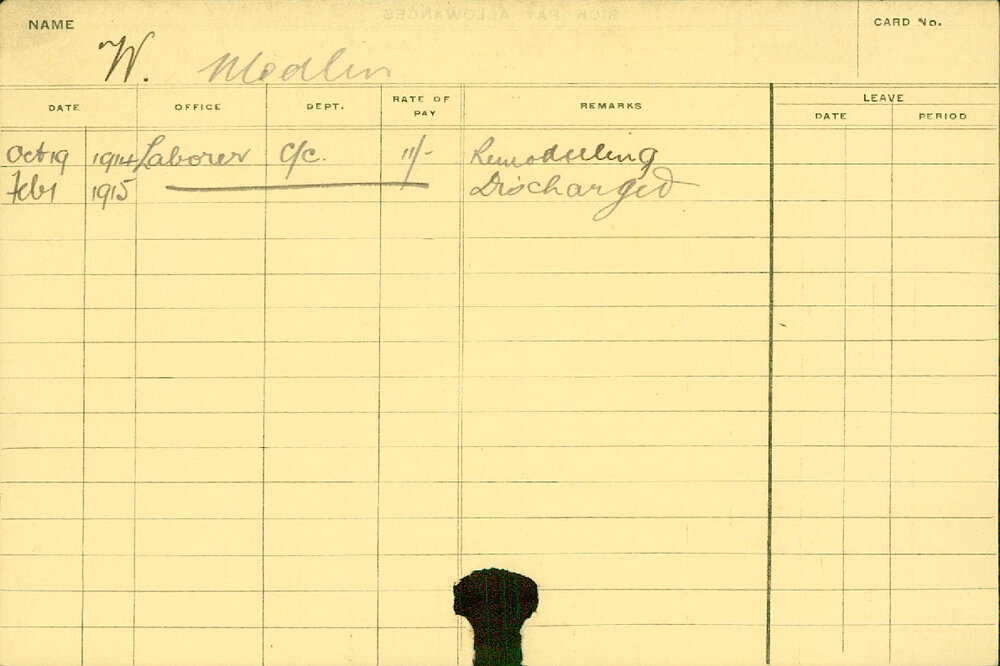 SICK PAY ALLOWANCES
NAME
CARD No.
W. Medlin
DATE OFFICE DEPT. RATE OF PAY REMARKS LEAVE
DATE PERIOD
Oct 19 1914 Laborer C/C. 11/- Remodelling
Feb 1 1915 Discharged